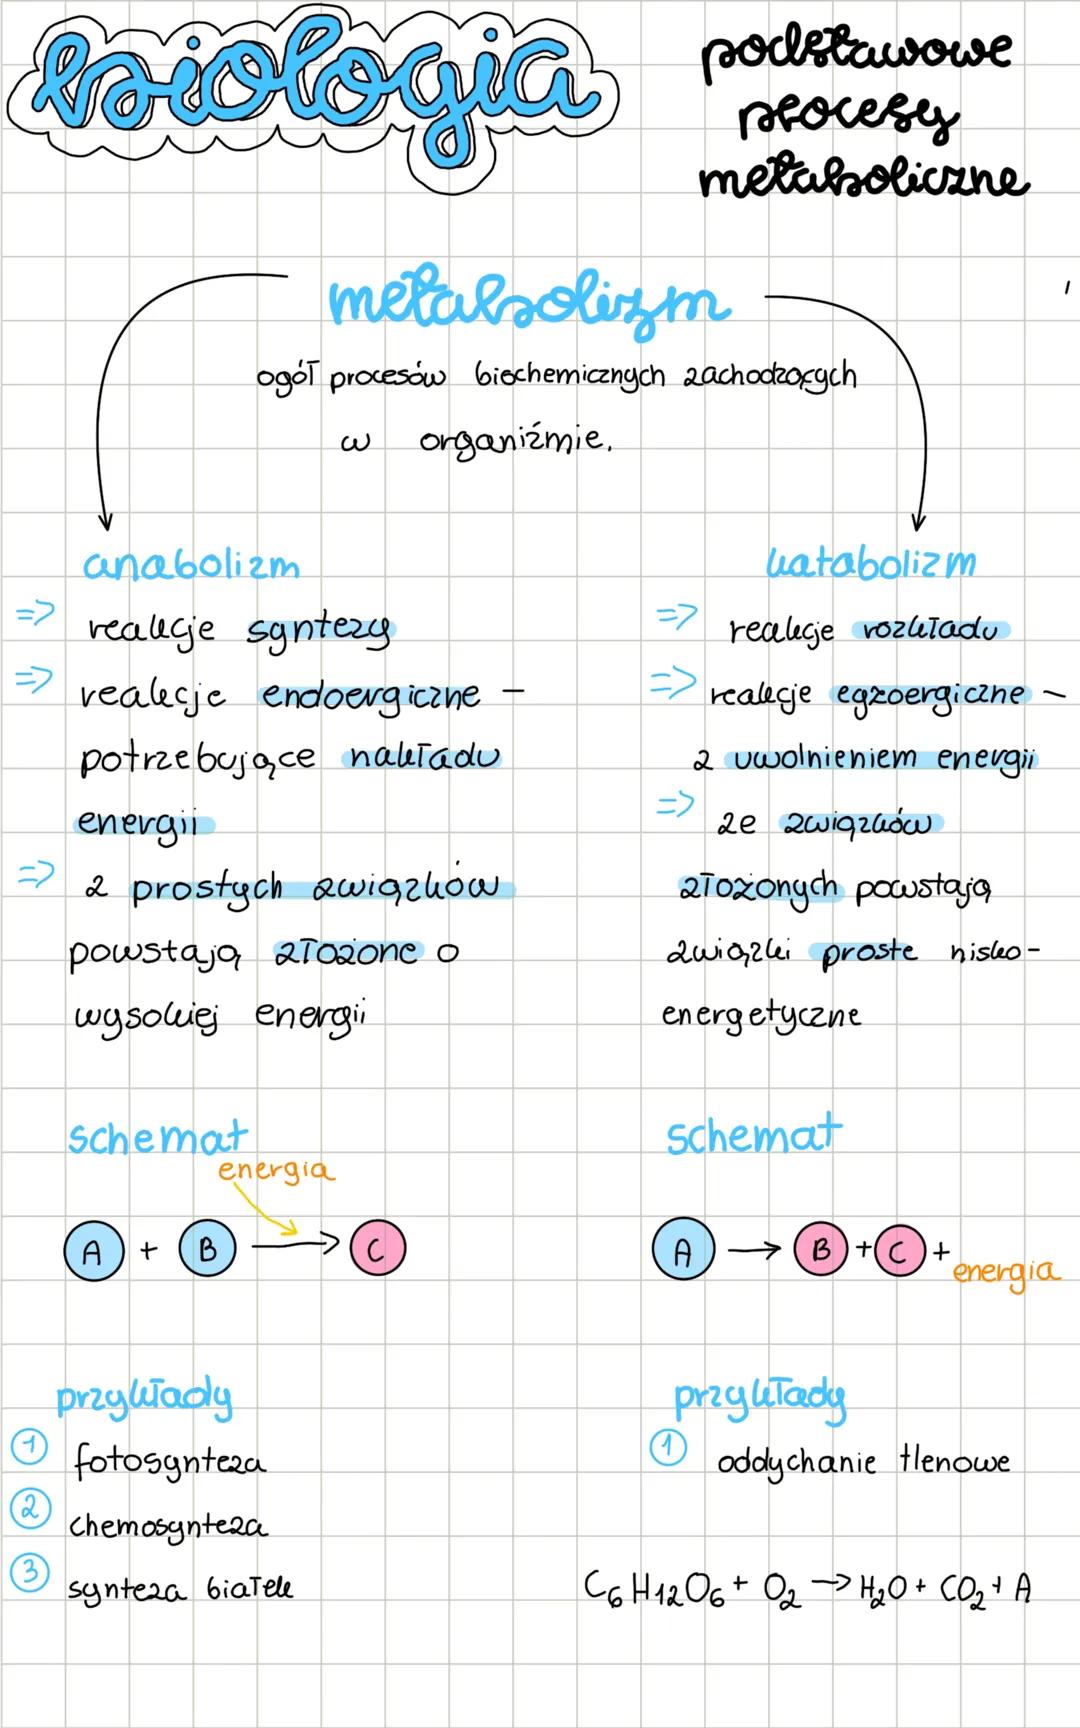 biologia
podstawowe
procesy
metaboliczne
metabolizm
ogół procesów biochemicznych zachodzących
w organiźmie.
anabolizm
=> reakcje syntezy
=> reakcje endoergiczne -
potrzebujące nakładu
energii
=> z prostych związków
powstają złożone o
wysokiej energii
schemat
energia
A + B → C
przykłady
1 fotosynteza
2 chemosynteza
3 synteza białek
katabolizm
=> reakcje rozkładu
=> reakcje egzoergiczne -
z uwolnieniem energii
=> ze związków
złożonych powstają
związki proste nisko-
energetyczne
schemat
A → B + C + energia
przykłady
1 oddychanie tlenowe
C6H12O6 + O2 → H2O + CO2 + A